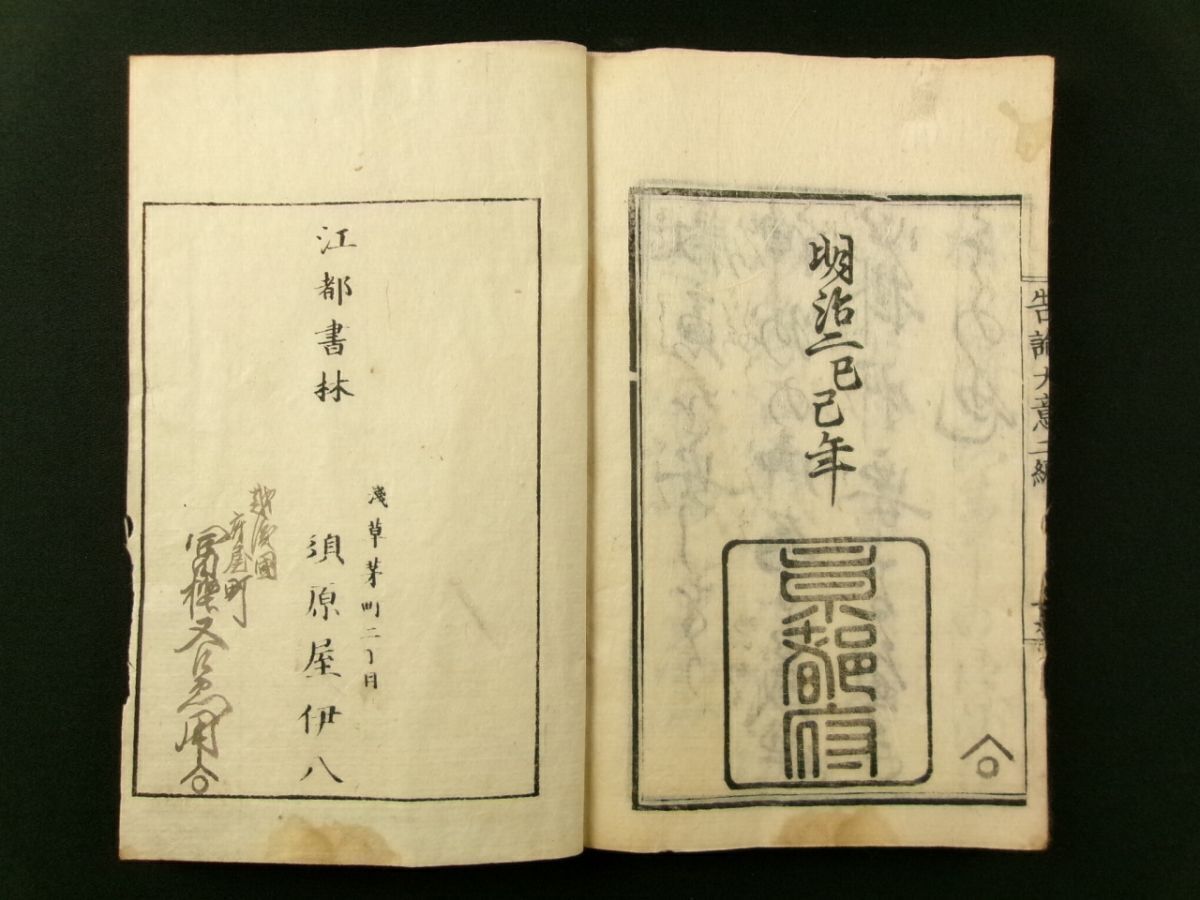 告諭大意二編
明治二己巳年
京都府
江都書林
淺草茅町二丁目
須原屋伊八
越後國
府屋町